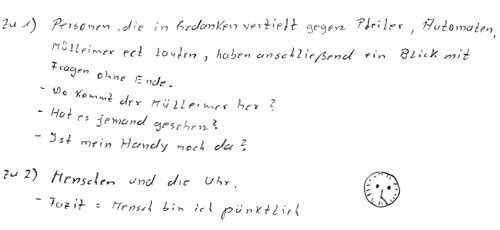 zu 1) Personen, die in Gedanken vertieft gegen Pfeiler, Automaten,
Mülleimer ect laufen, haben anschließend ein Blick mit
Fragen ohne Ende.
- Wo kommt der Mülleimer her?
- Hat es jemand gesehen?
- Ist mein Handy noch da?
zu 2) Menschen und die Uhr.
- Fazit = Mensch bin ich pünktlich